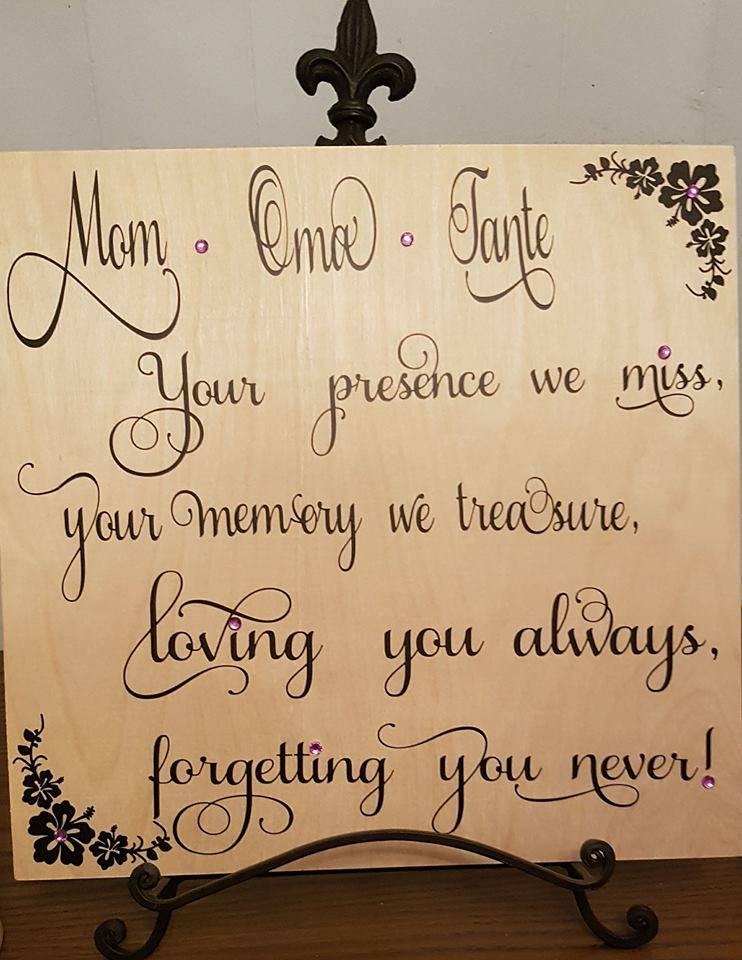 Mom • Oma • Tante
Your presence we miss,
your memory we treasure,
loving you always,
forgetting you never!